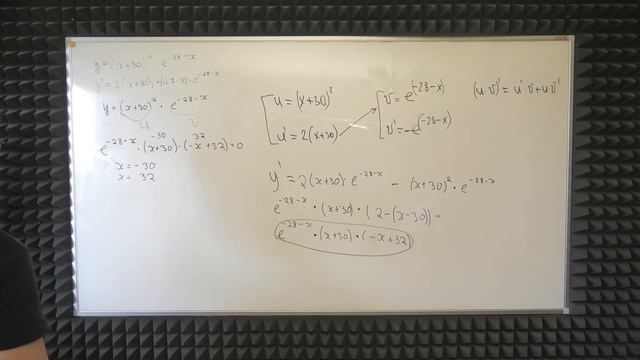 y = (x+30)² · e^(-28-x)
y' = 2(x+30) · (-28-x) · e^(-28-x)
y = (x+30)² · e^(-28-x)
u v
-30 32
e^(-28-x) · (x+30) · (-x+32) = 0
x = -30
x = 32
u = (x+30)²
u' = 2(x+30)
v = e^(-28-x)
v' = -e^(-28-x)
(u·v)' = u'·v + u·v'
y' = 2(x+30) · e^(-28-x) - (x+30)² · e^(-28-x)
e^(-28-x) · (x+30) · (2-(x-30)) =
e^(-28-x) · (x+30) · (-x+32)